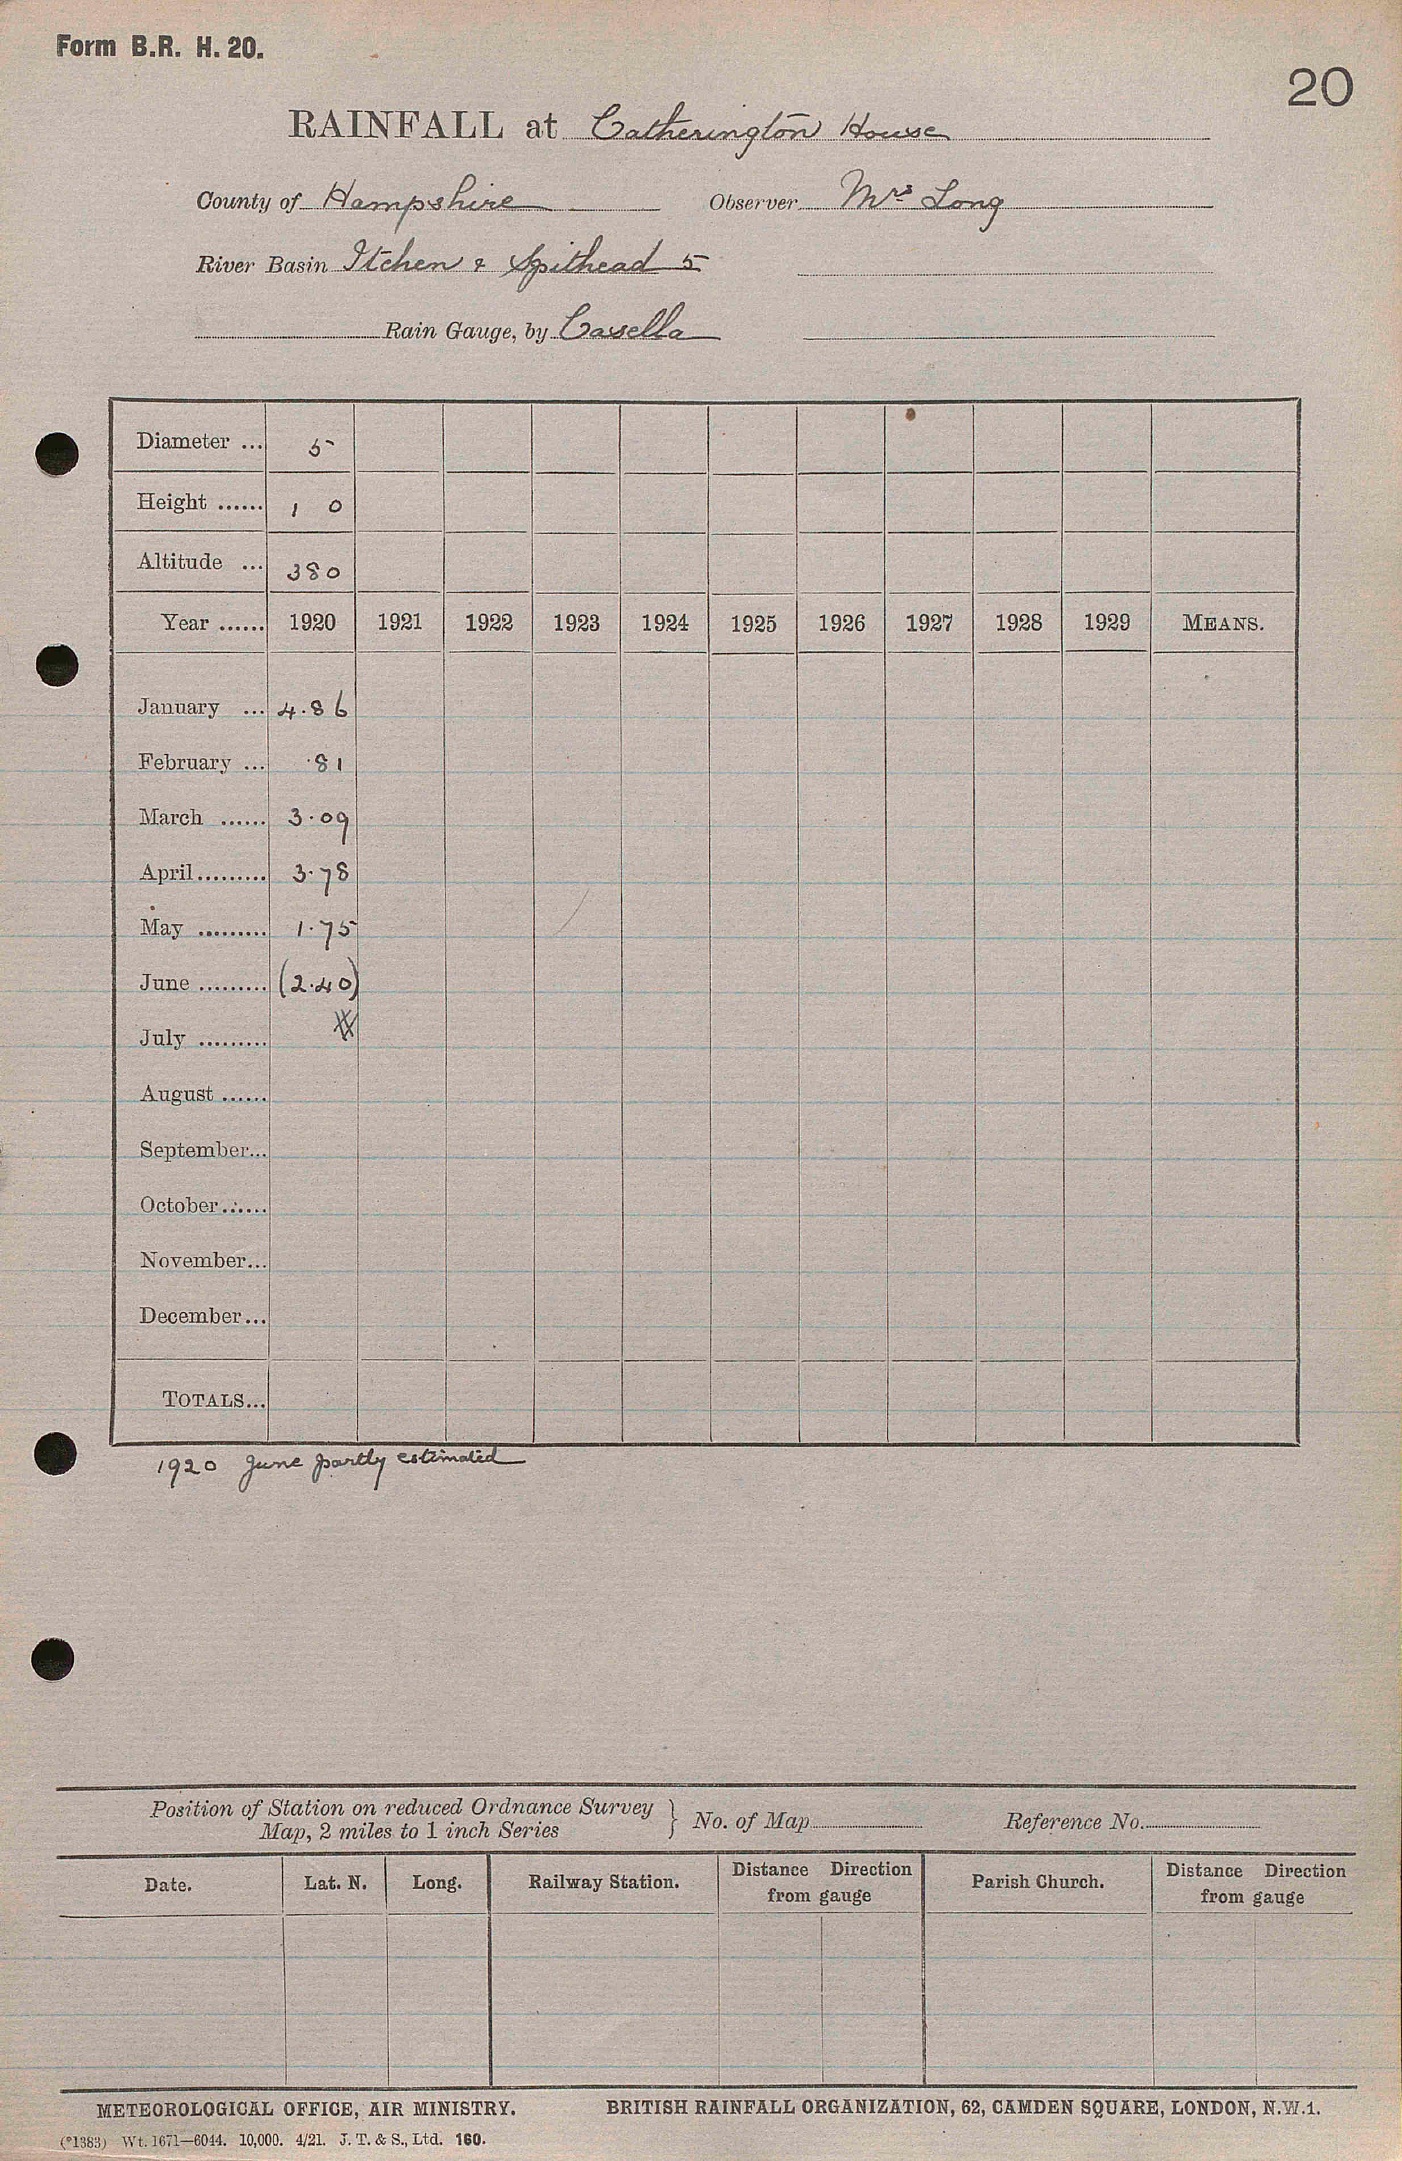 Form B.R. H. 20.
20
RAINFALL at Catherington House
County of Hampshire Observer Mrs Long
River Basin Itchen & Spithead 5
Rain Gauge, by Casella
Diameter ... 5
Height ...... 1 0
Altitude ... 380
Year ...... 1920 1921 1922 1923 1924 1925 1926 1927 1928 1929 MEANS.
January ... 4.86
February ... .81
March ...... 3.09
April ......... 3.78
May ......... 1.75
June ......... (2.40)
July .........
August ......
September...
October.......
November...
December...
TOTALS...
1920 June partly estimated
Position of Station on reduced Ordnance Survey
Map, 2 miles to 1 inch Series } No. of Map Reference No.
Date. Lat. N. Long. Railway Station. Distance Direction from gauge Parish Church. Distance Direction from gauge
METEOROLOGICAL OFFICE, AIR MINISTRY. BRITISH RAINFALL ORGANIZATION, 62, CAMDEN SQUARE, LONDON, N.W.1.
(*1383) Wt. 1671—6044. 10,000. 4/21. J. T. & S., Ltd. 160.